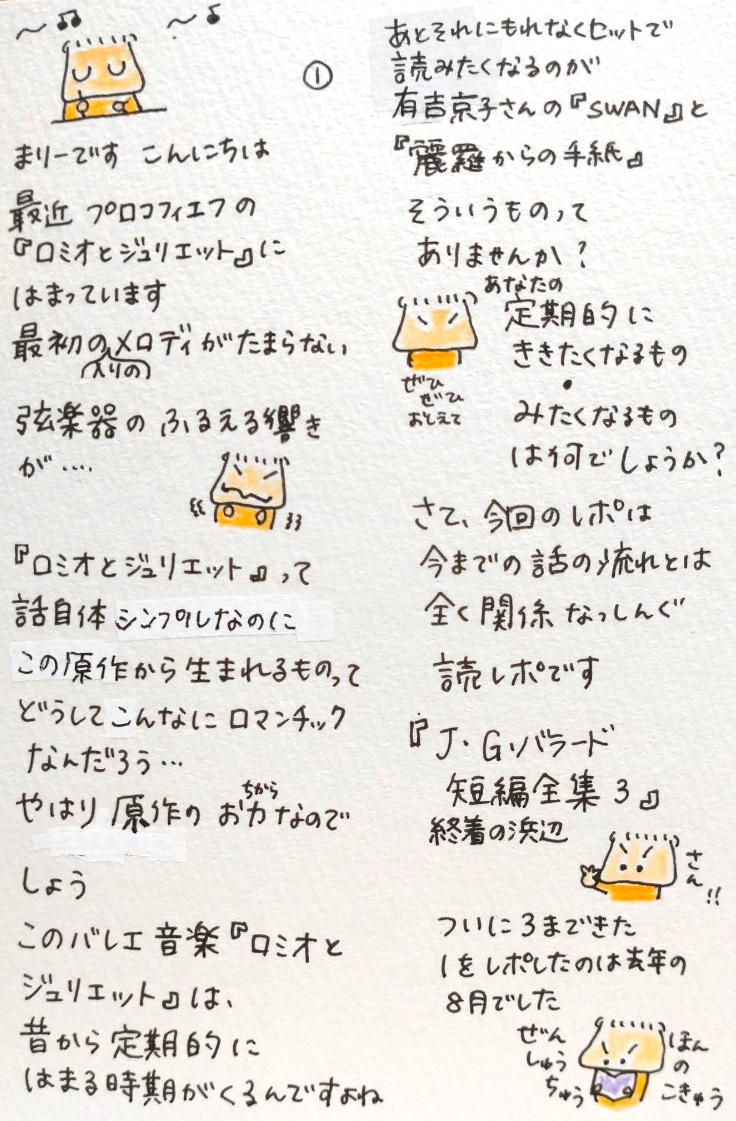 ①
まりーです こんにちは
最近 プロコフィエフの
『ロミオとジュリエット』に
はまっています
最初のメロディがたまらない
入りの
弦楽器の ふるえる響き
が‥‥
『ロミオとジュリエット』って
話自体 シンプルなのに
この原作から生まれるものって
どうしてこんなに ロマンチック
なんだろう…
ちから
やはり 原作の お力なので
しょう
このバレエ 音楽『ロミオと
ジュリエット』は、
昔から 定期的に
はまる時期がくるんですよね
あとそれにもれなくセットで
読みたくなるのが
有吉京子さんの『SWAN』と
『麗羅からの手紙』
そういうものって
ありませんか?
あなたの
定期的に
ききたくなるもの
・
みたくなるもの
は何でしょうか?
ぜひ
ぜひ
おしえて
さて、今回のレポは
今までの話の流れとは
全く関係なっしんぐ
読レポです
『J・G・バラード
短編全集3』
終着の浜辺
さん!!
ついに3まできた
1をレポしたのは去年の
8月でした
ぜん
しゅう
ちゅう
ほん
の
こきゅう